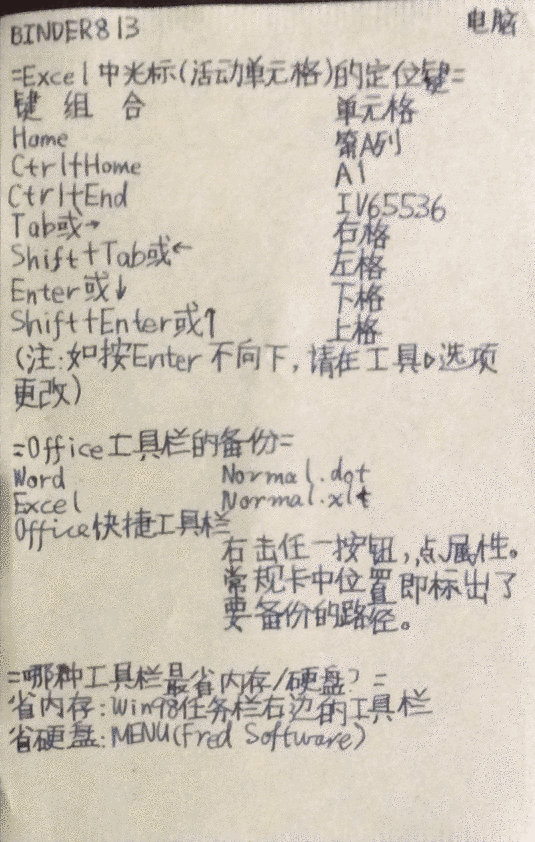 BINDER813 电脑
=Excel中光标(活动单元格)的定位键=
键 组 合 单元格
Home 第A列
Ctrl+Home A1
Ctrl+End IV65536
Tab或→ 右格
Shift+Tab或← 左格
Enter或↓ 下格
Shift+Enter或↑ 上格
(注:如按Enter不向下,请在工具▷选项
更改)
=Office工具栏的备份=
Word Normal.dot
Excel Normal.xlt
Office快捷工具栏
右击任一按钮,点属性。
常规卡中位置即标出了
要备份的路径。
=哪种工具栏最省内存/硬盘?=
省内存:Win98任务栏右边的工具栏
省硬盘:MENU(Fred Software)